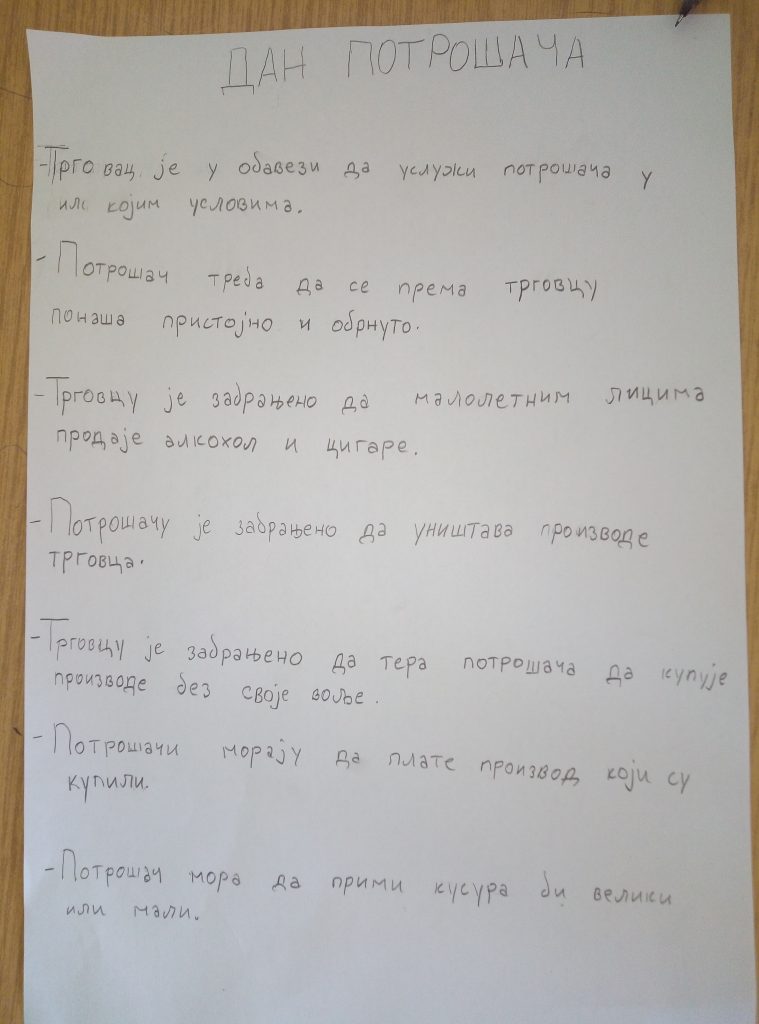 ДАН ПОТРОШАЧА
-Трговац је у обавези да услужи потрошача у
којим условима.
- Потрошач треба да се према трговцу
понаша пристојно и обрнуто.
-Трговцу је забрањено да малолетним лицима
продаје алкохол и цигаре.
- Потрошачу је забрањено да уништава производе
трговца.
-Трговцу је забрањено да тера потрошача да купује
производе без своје воље.
- Потрошачи морају да плате производ који су
купили.
-Потрошач мора да прими кусура би велики
или мали.